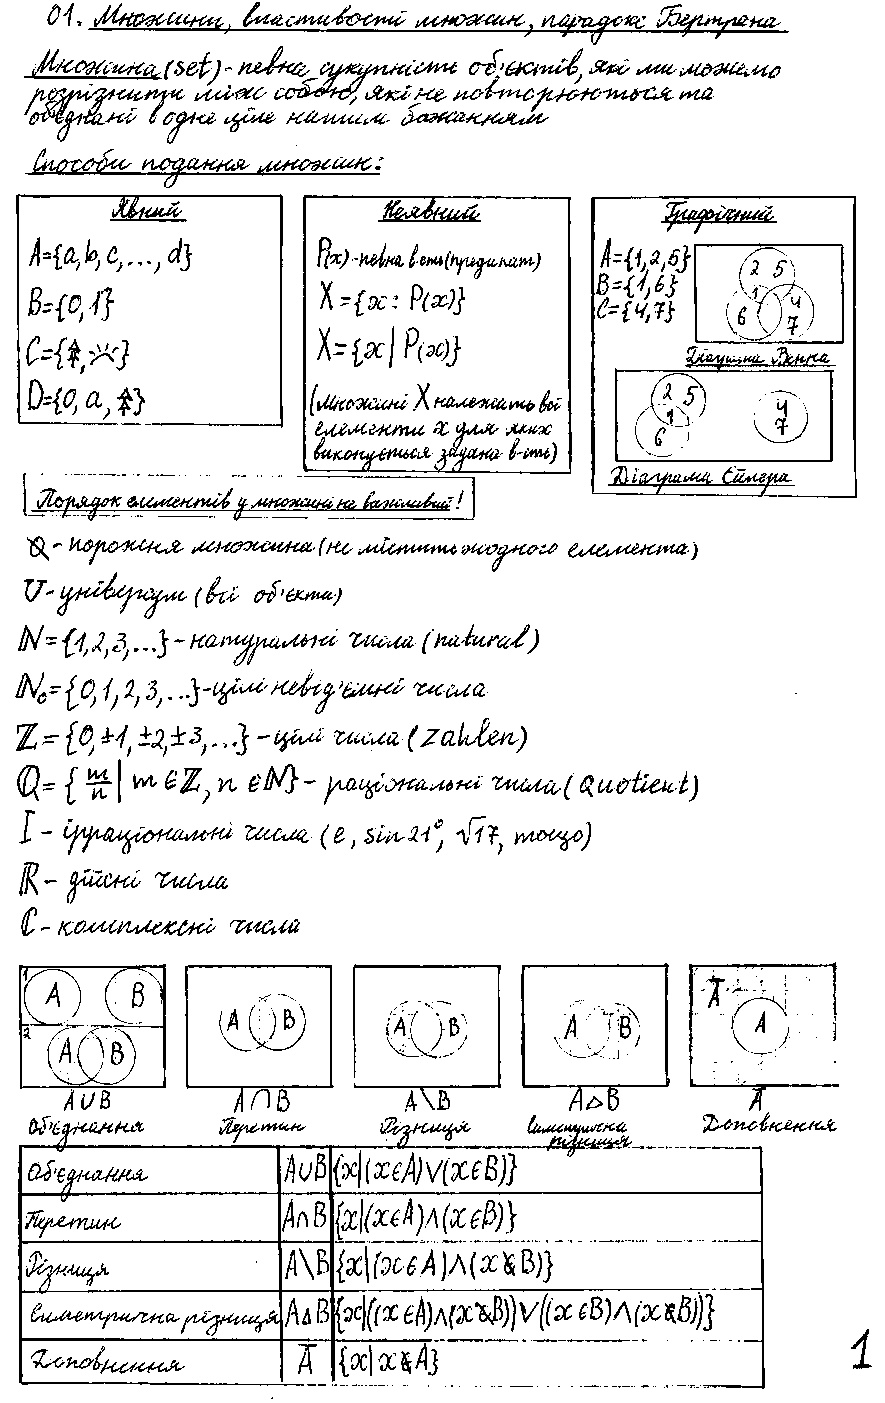 01. Множини, властивості множин, парадокс Бертрана
Множина (set) - певна сукупність об'єктів, які ми можемо
розрізнити між собою, які не повторюються та
об'єднані в одне ціле нашим бажанням
Способи подання множин:
Явний
A={a,b,c,...,d}
B={0,1}
C={
D={0, a,
Неявний
P(x)-певна в-сть(предикат)
X={x: P(x)}
X={x| P(x)}
(множині X належить всі
елементи x для яких
виконується задана в-сть)
Графічний
A={1,2,5}
B={1,6}
C={4,7}
2 5
1
6
4
7
Діаграма Венна
2 5
1
6
4
7
Діаграма Ейлера
Порядок елементів у множині не важливий!
∅-порожня множина(не містить жодного елемента)
U-універсум (всі об'єкти)
ℕ={1,2,3,...}-натуральні числа (natural)
ℕ₀={0,1,2,3,...}-цілі невід'ємні числа
ℤ={0,±1,±2,±3,...}-цілі числа (Zahlen)
ℚ={m/n| m∈ℤ, n∈ℕ}- раціональні числа (Quotient)
I - ірраціональні числа (e, sin21°, √17, тощо)
ℝ- дійсні числа
ℂ-комплексні числа
1 A B
2 A B
A B
A B
A B
Ā A
A∪B A∩B A\B A△B Ā
Об'єднання Перетин Різниця Симетрична різниця Доповнення
Об'єднання A∪B {x|(x∈A)∨(x∈B)}
Перетин A∩B {x|(x∈A)∧(x∈B)}
Різниця A\B {x|(x∈A)∧(x∉B)}
Симетрична різниця A△B {x|((x∈A)∧(x∉B))∨((x∈B)∧(x∉B))}
Доповнення Ā {x|x∉A}
1